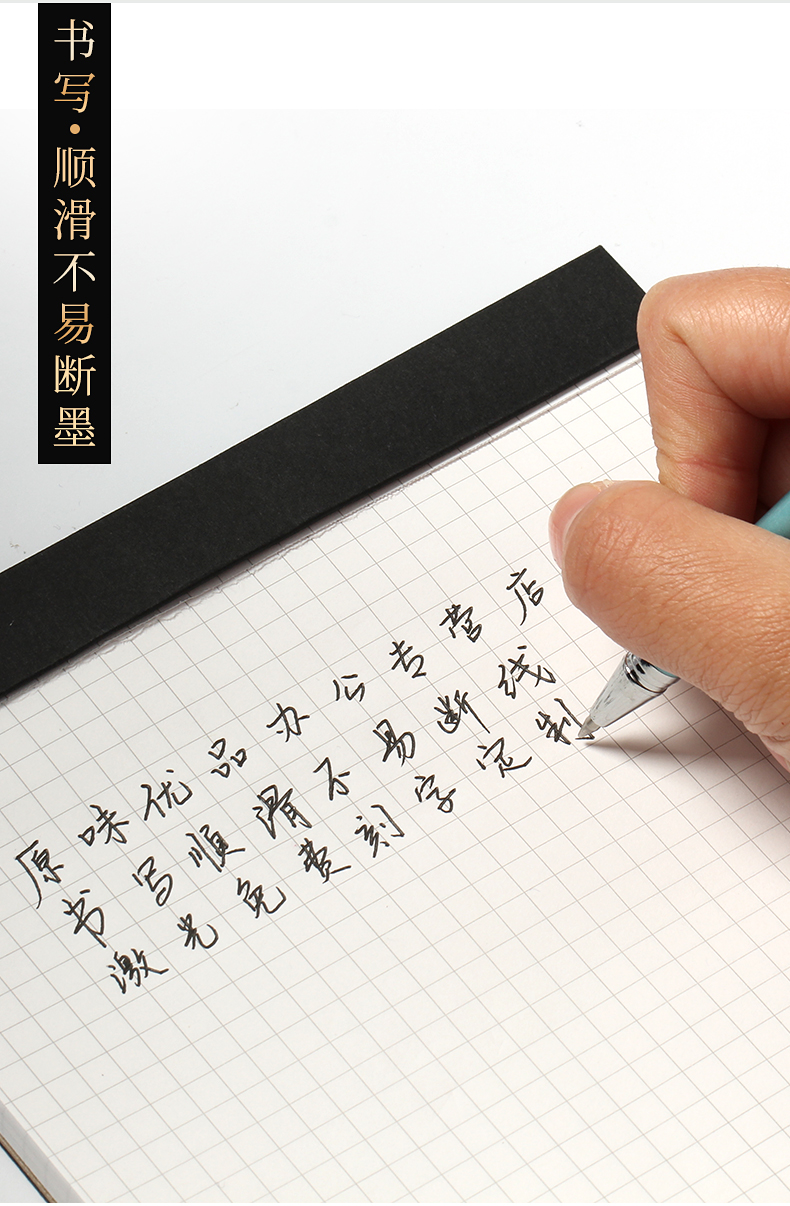 书写·顺滑不易断墨
原味优品办公专营店
书写顺滑不易断线
激光免费刻字定制